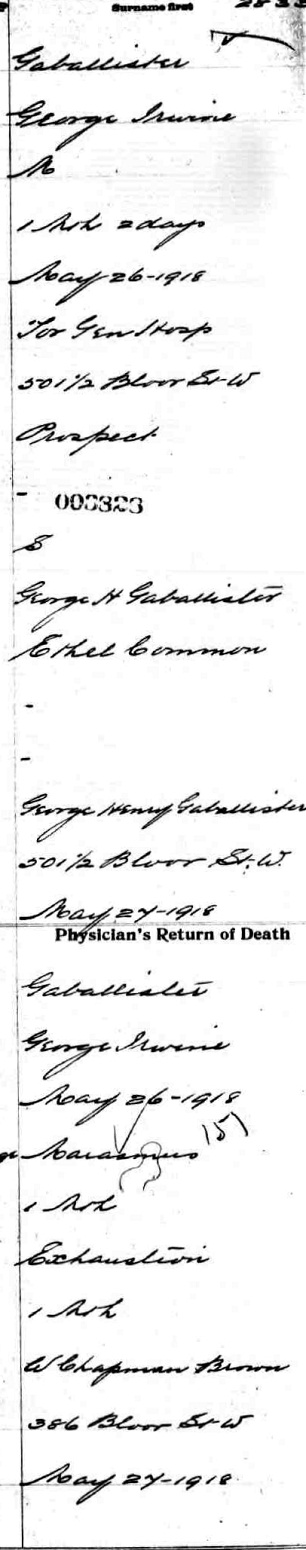 Surname first
Gaballister
George Irwine
M
1 Mth 2 days
May 26-1918
Tor Gen Hosp
501 1/2 Bloor St W
Prospect
-
S
George H Gaballister
Ethel Common
-
-
George Henry Gaballister
501 1/2 Bloor St. W.
May 27-1918
Physician's Return of Death
Gaballister
George Irwine
May 26-1918
Marasmus 151
1 Mth
Exhaustion
1 Mth
W Chapman Brown
386 Bloor St W
May 27-1918